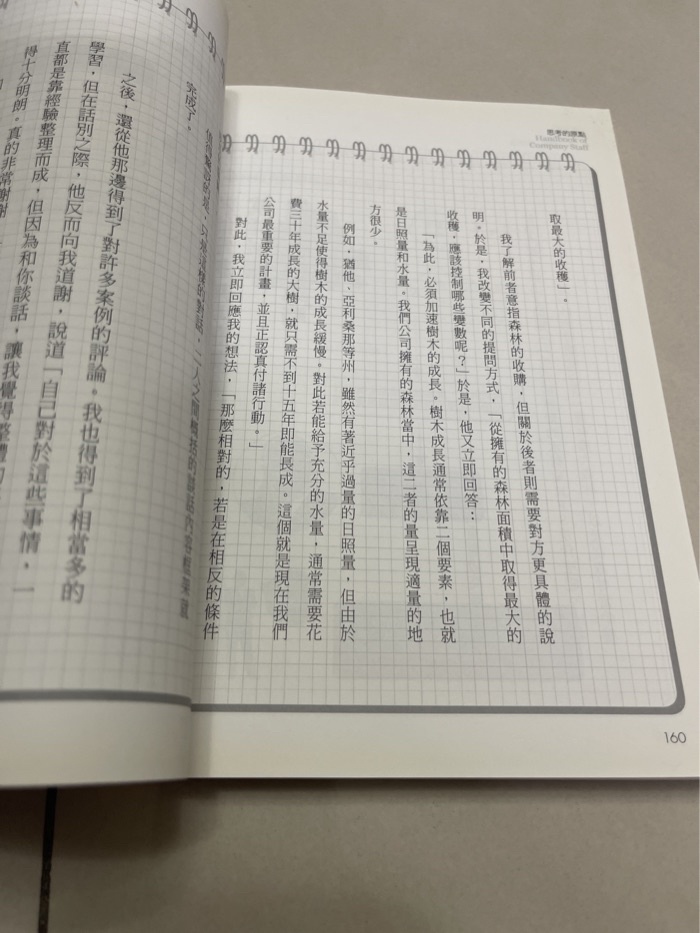 思考的原點
Handbook of
Company Staff
取最大的收穫」。
我了解前者意指森林的收購，但關於後者則需要對方更具體的說
明。於是，我改變不同的提問方式，「從擁有的森林面積中取得最大的
收穫，應該控制哪些變數呢？」於是，他又立即回答：
「為此，必須加速樹木的成長。樹木成長通常依靠二個要素，也就
是日照量和水量。我們公司擁有的森林當中，這二者的量呈現適量的地
方很少。
例如，猶他、亞利桑那等州，雖然有著近乎過量的日照量，但由於
水量不足使得樹木的成長緩慢。對此若能給予充分的水量，通常需要花
費三十年成長的大樹，就只需不到十五年即能長成。這個就是現在我們
公司最重要的計畫，並且正認真付諸行動。」
對此，我立即回應我的想法，「那麼相對的，若是在相反的條件
160
完成了。
之後，還從他那邊得到了對許多案例的評論。我也得到了相當多的
學習，但在話別之際，他反而向我道謝，說道「自己對於這些事情，一
直都是靠經驗整理而成，但因為和你談話，讓我覺得整體
得十分明朗。真的非常謝謝